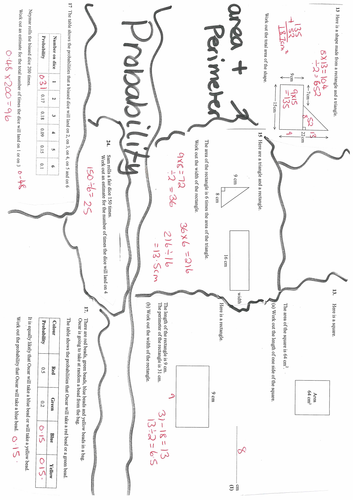 13 Here is a shape made from a rectangle and a triangle.
Work out the total area of the shape.
8x13=104
÷2=652
9x15
=135
area +
Perimeter
15 Here are a triangle and a rectangle.
The area of the rectangle is 6 times the area of the triangle.
Work out the width of the rectangle.
9 cm
8 cm
16 cm
width
9x8=72
÷2=36
36x6=216
216÷16
=13.5cm
13. Here is a square.
Area
64 cm²
The area of the square is 64 cm².
(a) Work out the length of one side of the square.
8
cm
(1)
Here is a rectangle.
9 cm
The length of the rectangle is 9 cm.
The perimeter of the rectangle is 31 cm.
(b) Work out the width of the rectangle.
31-18=13
13÷2=6.5
Probability
17 The table shows the probabilities that a biased dice will land on 2, on 3, on 4, on 5 and on 6
Number on dice 1 2 3 4 5 6
Probability 0.31 0.17 0.18 0.09 0.15 0.1
Neymar rolls the biased dice 200 times.
Work out an estimate for the total number of times the dice will land on 1 or on 3
0.48x200=96
24. Sam rolls a fair dice 150 times.
Work out an estimate for the number of times the dice will land on 4
150÷6=25
17. There are red beads, green beads, blue beads and yellow beads in a bag.
Oscar is going to take at random a bead from the bag.
The table shows the probabilities that Oscar will take a red bead or a green bead.
Colour Red Blue Yellow
Probability 0.5 0.2 0.15 0.15
It is equally likely that Oscar will take a blue bead or will take a yellow bead.
Work out the probability that Oscar will take a blue bead.
0.15